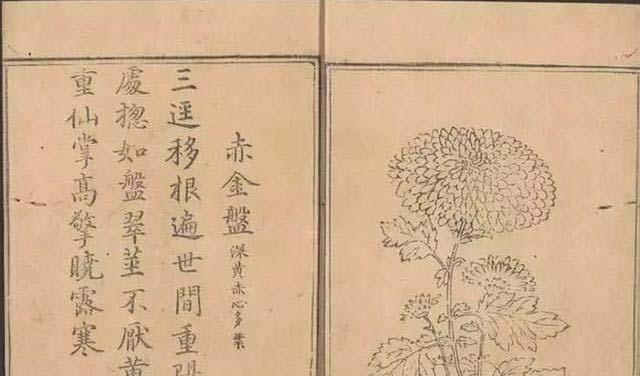 赤金盤 深黄赤心多葉
三逕移根遍世間重陽
處揔如盤翠莖不厭黄
重仙掌高擎曉露寒